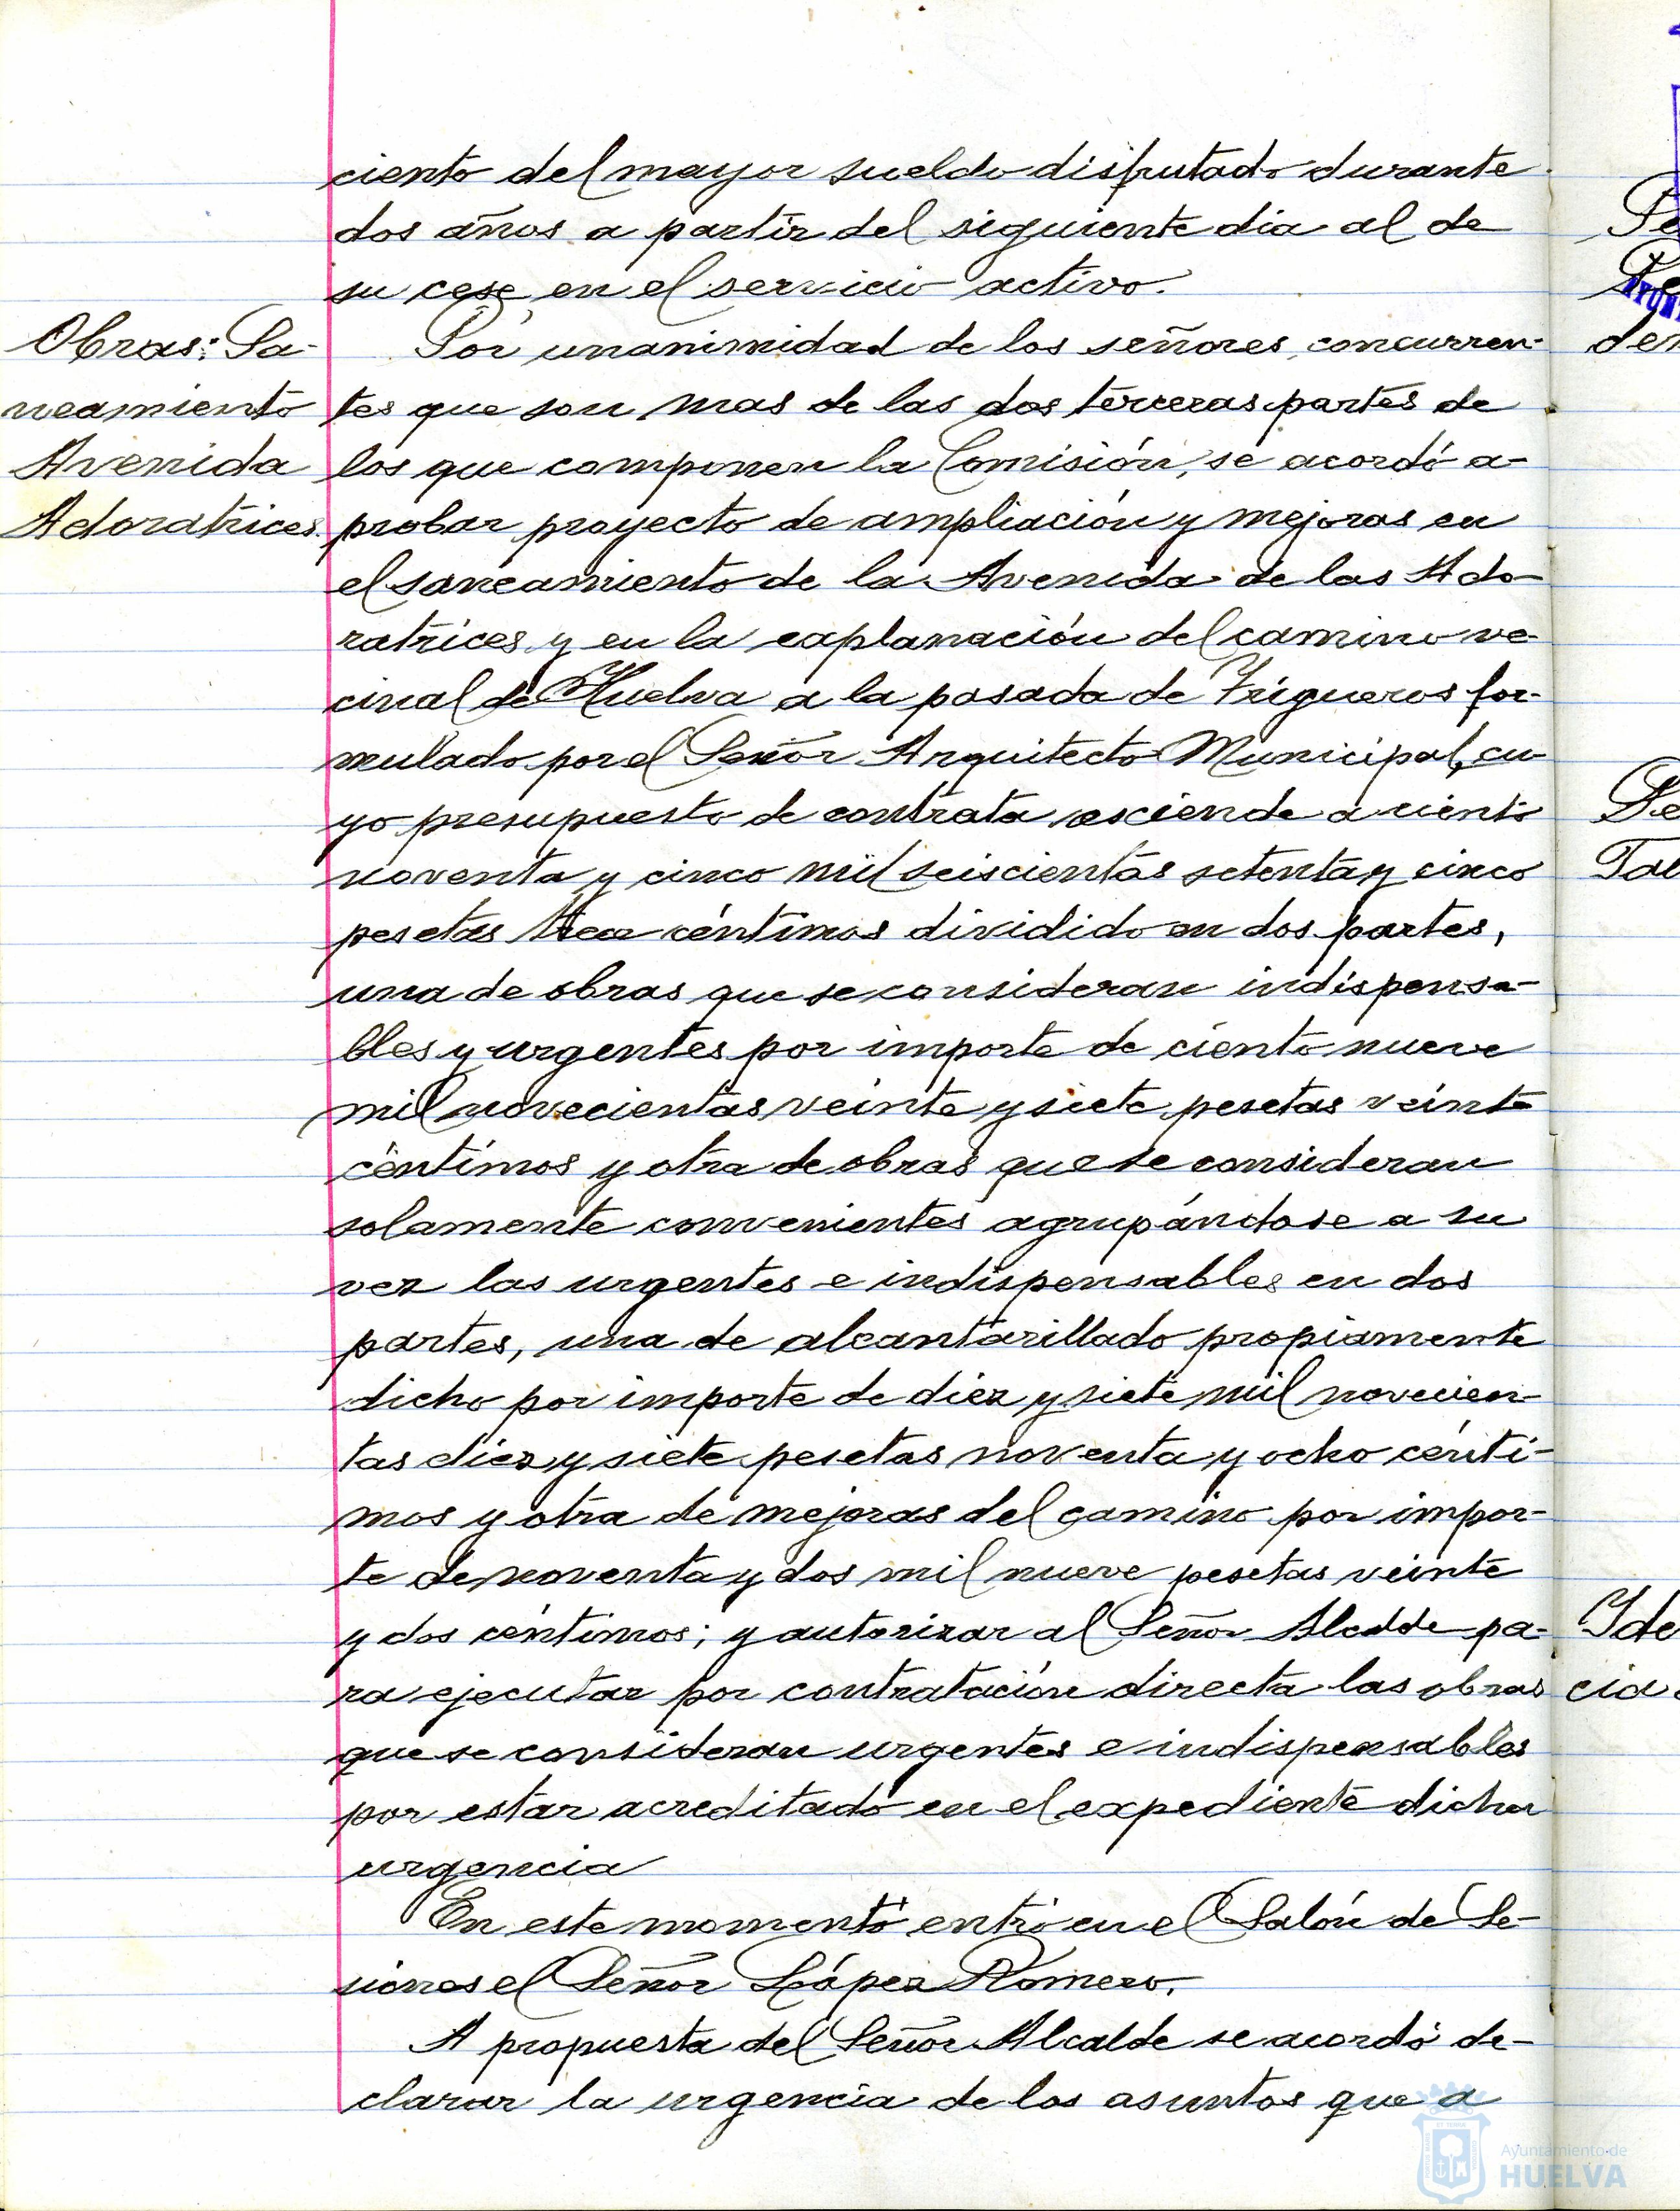 ciento del mayor sueldo disfrutado durante
dos años a partir del siguiente dia al de
su cese en el servicio activo.
Obras: Sa-
neamiento
Avenida
Adoratrices.
Por unanimidad de los señores concurren-
tes que son mas de las dos terceras partes de
los que componen la Comisión, se acordó a-
probar proyecto de ampliación y mejoras en
el saneamiento de la Avenida de las Ado-
ratrices y en la explanación del camino ve-
cinal de Huelva a la pasada de Trigueros for-
mulado por el Señor Arquitecto Municipal, cu-
yo presupuesto de contrata asciende a ciento
noventa y cinco mil seiscientas setenta y cinco
pesetas céntimos dividido en dos partes,
una de obras que se consideran indispensa-
bles y urgentes por importe de ciento nueve
mil novecientas veinte y siete pesetas veinte
céntimos y otra de obras que se consideran
solamente convenientes agrupándose a su
vez las urgentes e indispensables en dos
partes, una de alcantarillado propiamente
dicho por importe de diez y siete mil novecien-
tas diez y siete pesetas noventa y ocho cénti-
mos y otra de mejoras del camino por impor-
te de noventa y dos mil nueve pesetas veinte
y dos céntimos; y autorizar al Señor Alcalde pa-
ra ejecutar por contratación directa las obras
que se consideran urgentes e indispensables
por estar acreditado en el expediente dicha
urgencia
En este momento entró en el Salón de Se-
siones el Señor López Romero.
A propuesta del Señor Alcalde se acordó de-
clarar la urgencia de los asuntos que a
Ayuntamiento de
HUELVA